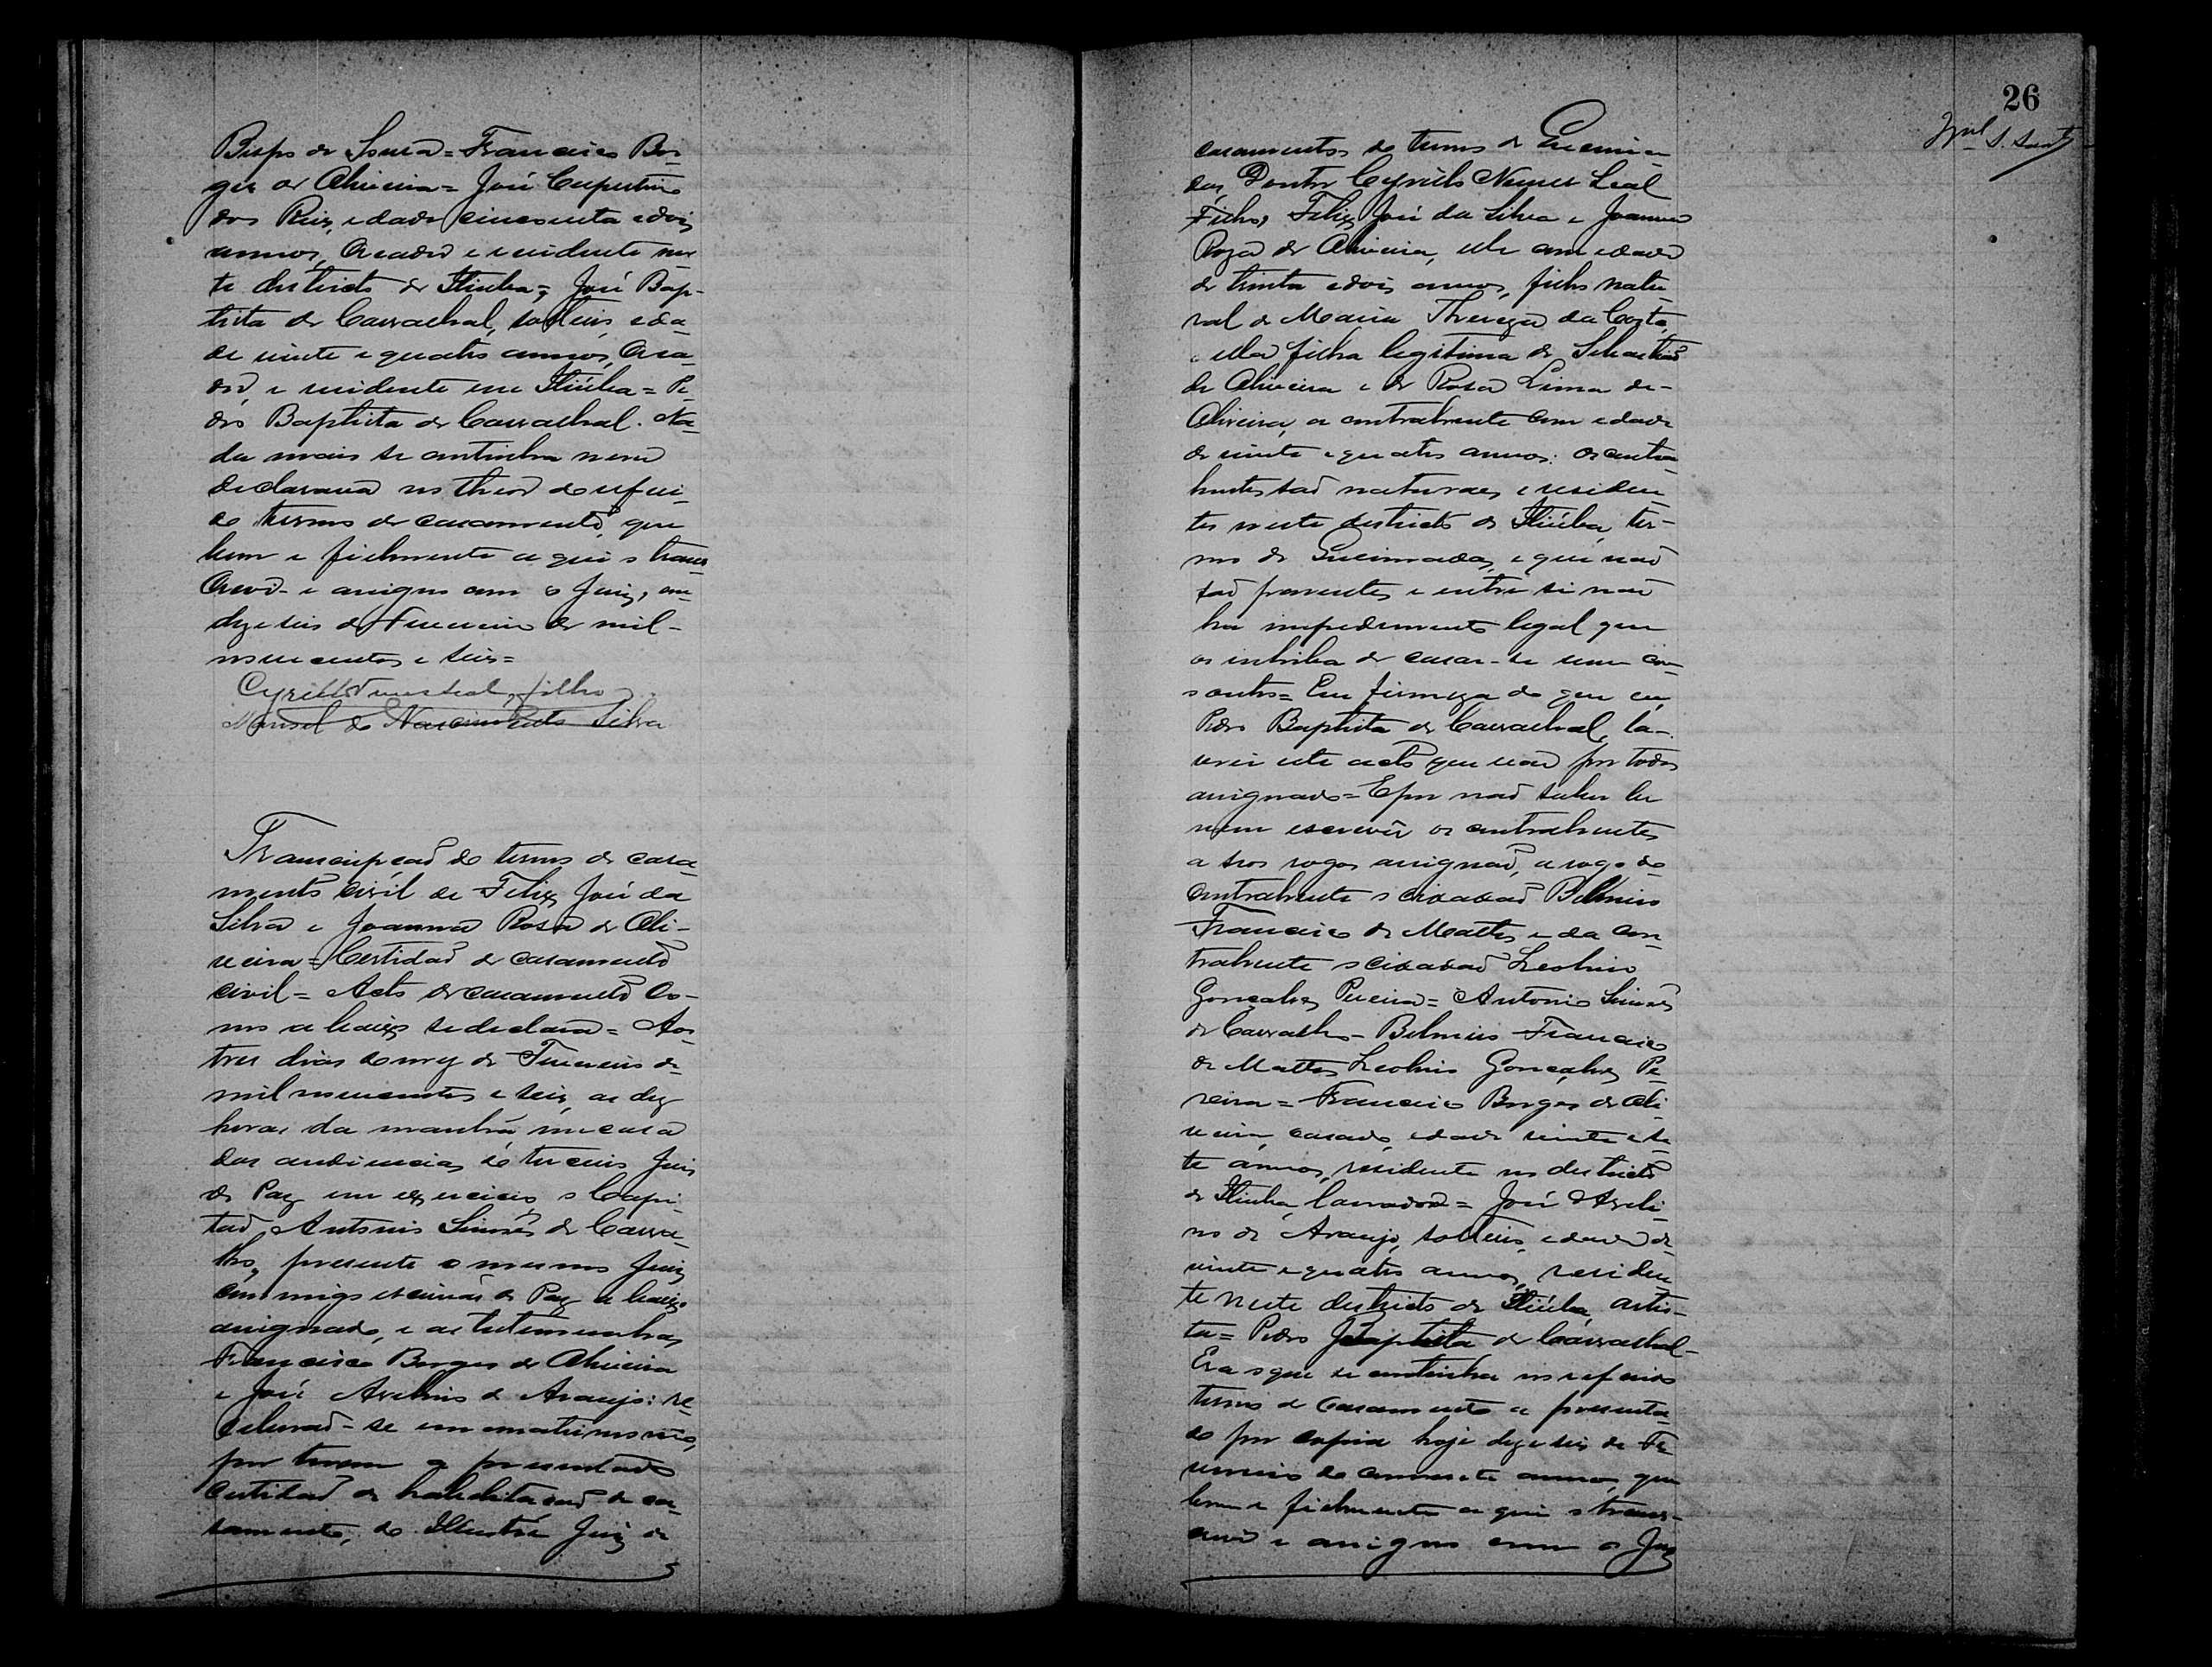 Bispo de Souza = Francisco Bor-
ges de Oliveira = José Cupertino
dos Reis, edade cincoenta e dois
annos, Creador e residente nes-
te districto de Itiuba = José Bap-
tista de Carvalhal, solteiro, eda-
de vinte e quatro annos, Crea-
dor, e residente em Itiúba = Pe-
dro Baptista de Carvalhal. Na-
da mais se continha nem
declarava no theor do referi-
do termo de casamento, que
bem e fielmente aqui o trans-
crevi e assigno com o Juiz, em
dezeseis de Fevereiro de mil
novecentos e seis =
Cyrillo Nunes Leal, filho
Manoel do Nascimento Silva
Transcripção do termo de casa-
mento civil de Felix José da
Silva e Joanna Rosa de Oli-
veira = Certidão de casamento
civil = Acto de casamento Co-
mo abaixo se declara = Aos
tres dias do mez de Fevereiro de
mil novecentos e seis, as dez
horas da manhã, em casa
das audiencias do terceiro Juiz
de Paz em exercicio o Capi-
tão Antonio Simões de Carva-
lho, presente o mesmo Juiz
commigo escrivão de Paz abaixo
assignado, e as testemunhas
Francisco Borges de Oliveira
e José Avelino de Araujo: re-
ceberão-se em matrimonio,
por terem apresentado
certidão de habilitação de ca-
samento, do Illustre Juiz de
26
casamentos do termo de Queima-
das, Doutor Cyrillo Nunes Leal
Filho, Felix José da Silva e Joanna
Roza de Oliveira, elle com edade
de trinta e dois annos, filho natu-
ral de Maria Thereza da Costa,
e ella filha legitima de Sebastião
de Oliveira e de Rosa Lima de
Oliveira, a contrahente com edade
de vinte e quatro annos: os contra-
hentes são naturaes, e residen-
tes neste districto de Itiúba, ter-
mo de Queimadas, e que não
são parentes e entre si não
ha impedimento legal que
os inhiba de casar-se um com
o outro = Em firmeza do que eu
Pedro Baptista de Carvalhal, la-
vrei este acto que vae por todos
assignado = E por não saber ler
nem escrever os contrahentes
a seos rogos assignão, a rogo do
contrahente o cidadão Belmiro
Francisco de Mattos, e da con-
trahente o cidadão Leolino
Gonçalves Pereira = Antonio Simões
de Carvalho = Belmiro Francisco
de Mattos Leolino Gonçalves Pe-
reira = Francisco Borges de Oli-
veira, casado, edade vinte e se-
te annos, residente no districto
de Itiuba, lavrador = José Aveli-
no de Araujo, solteiro, edade de
vinte e quatro annos, residen-
te neste districto de Itiúba, artis-
ta = Pedro Baptista de Carvalhal
Era o que se continha no referido
termo de casamento a presenta-
do por copia hoje dezeseis de Fe-
vereiro do corrente anno, que
bem e fielmente aqui o trans-
crevi e assigno com o Juiz